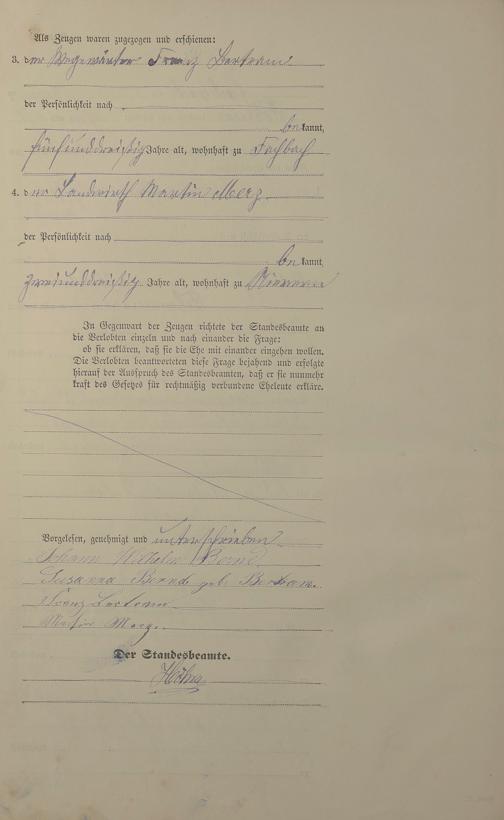 Als Zeugen waren zugezogen und erschienen:
3. der Wegewärter Franz Bertram
der Persönlichkeit nach
bekannt,
fünfunddreißig Jahre alt, wohnhaft zu Fachbach
4. der Landwirth Martin Merz
der Persönlichkeit nach
bekannt,
zweiunddreißig Jahre alt, wohnhaft zu Nievern
In Gegenwart der Zeugen richtete der Standesbeamte an
die Verlobten einzeln und nach einander die Frage:
ob sie erklären, daß sie die Ehe mit einander eingehen wollen.
Die Verlobten beantworteten diese Frage bejahend und erfolgte
hierauf der Ausspruch des Standesbeamten, daß er sie nunmehr
kraft des Gesetzes für rechtmäßig verbundene Eheleute erkläre.
Vorgelesen, genehmigt und unterschrieben
Johann Wilhelm
Susanna geb. Bertram.
Franz Bertram
Martin Merz.
Der Standesbeamte.